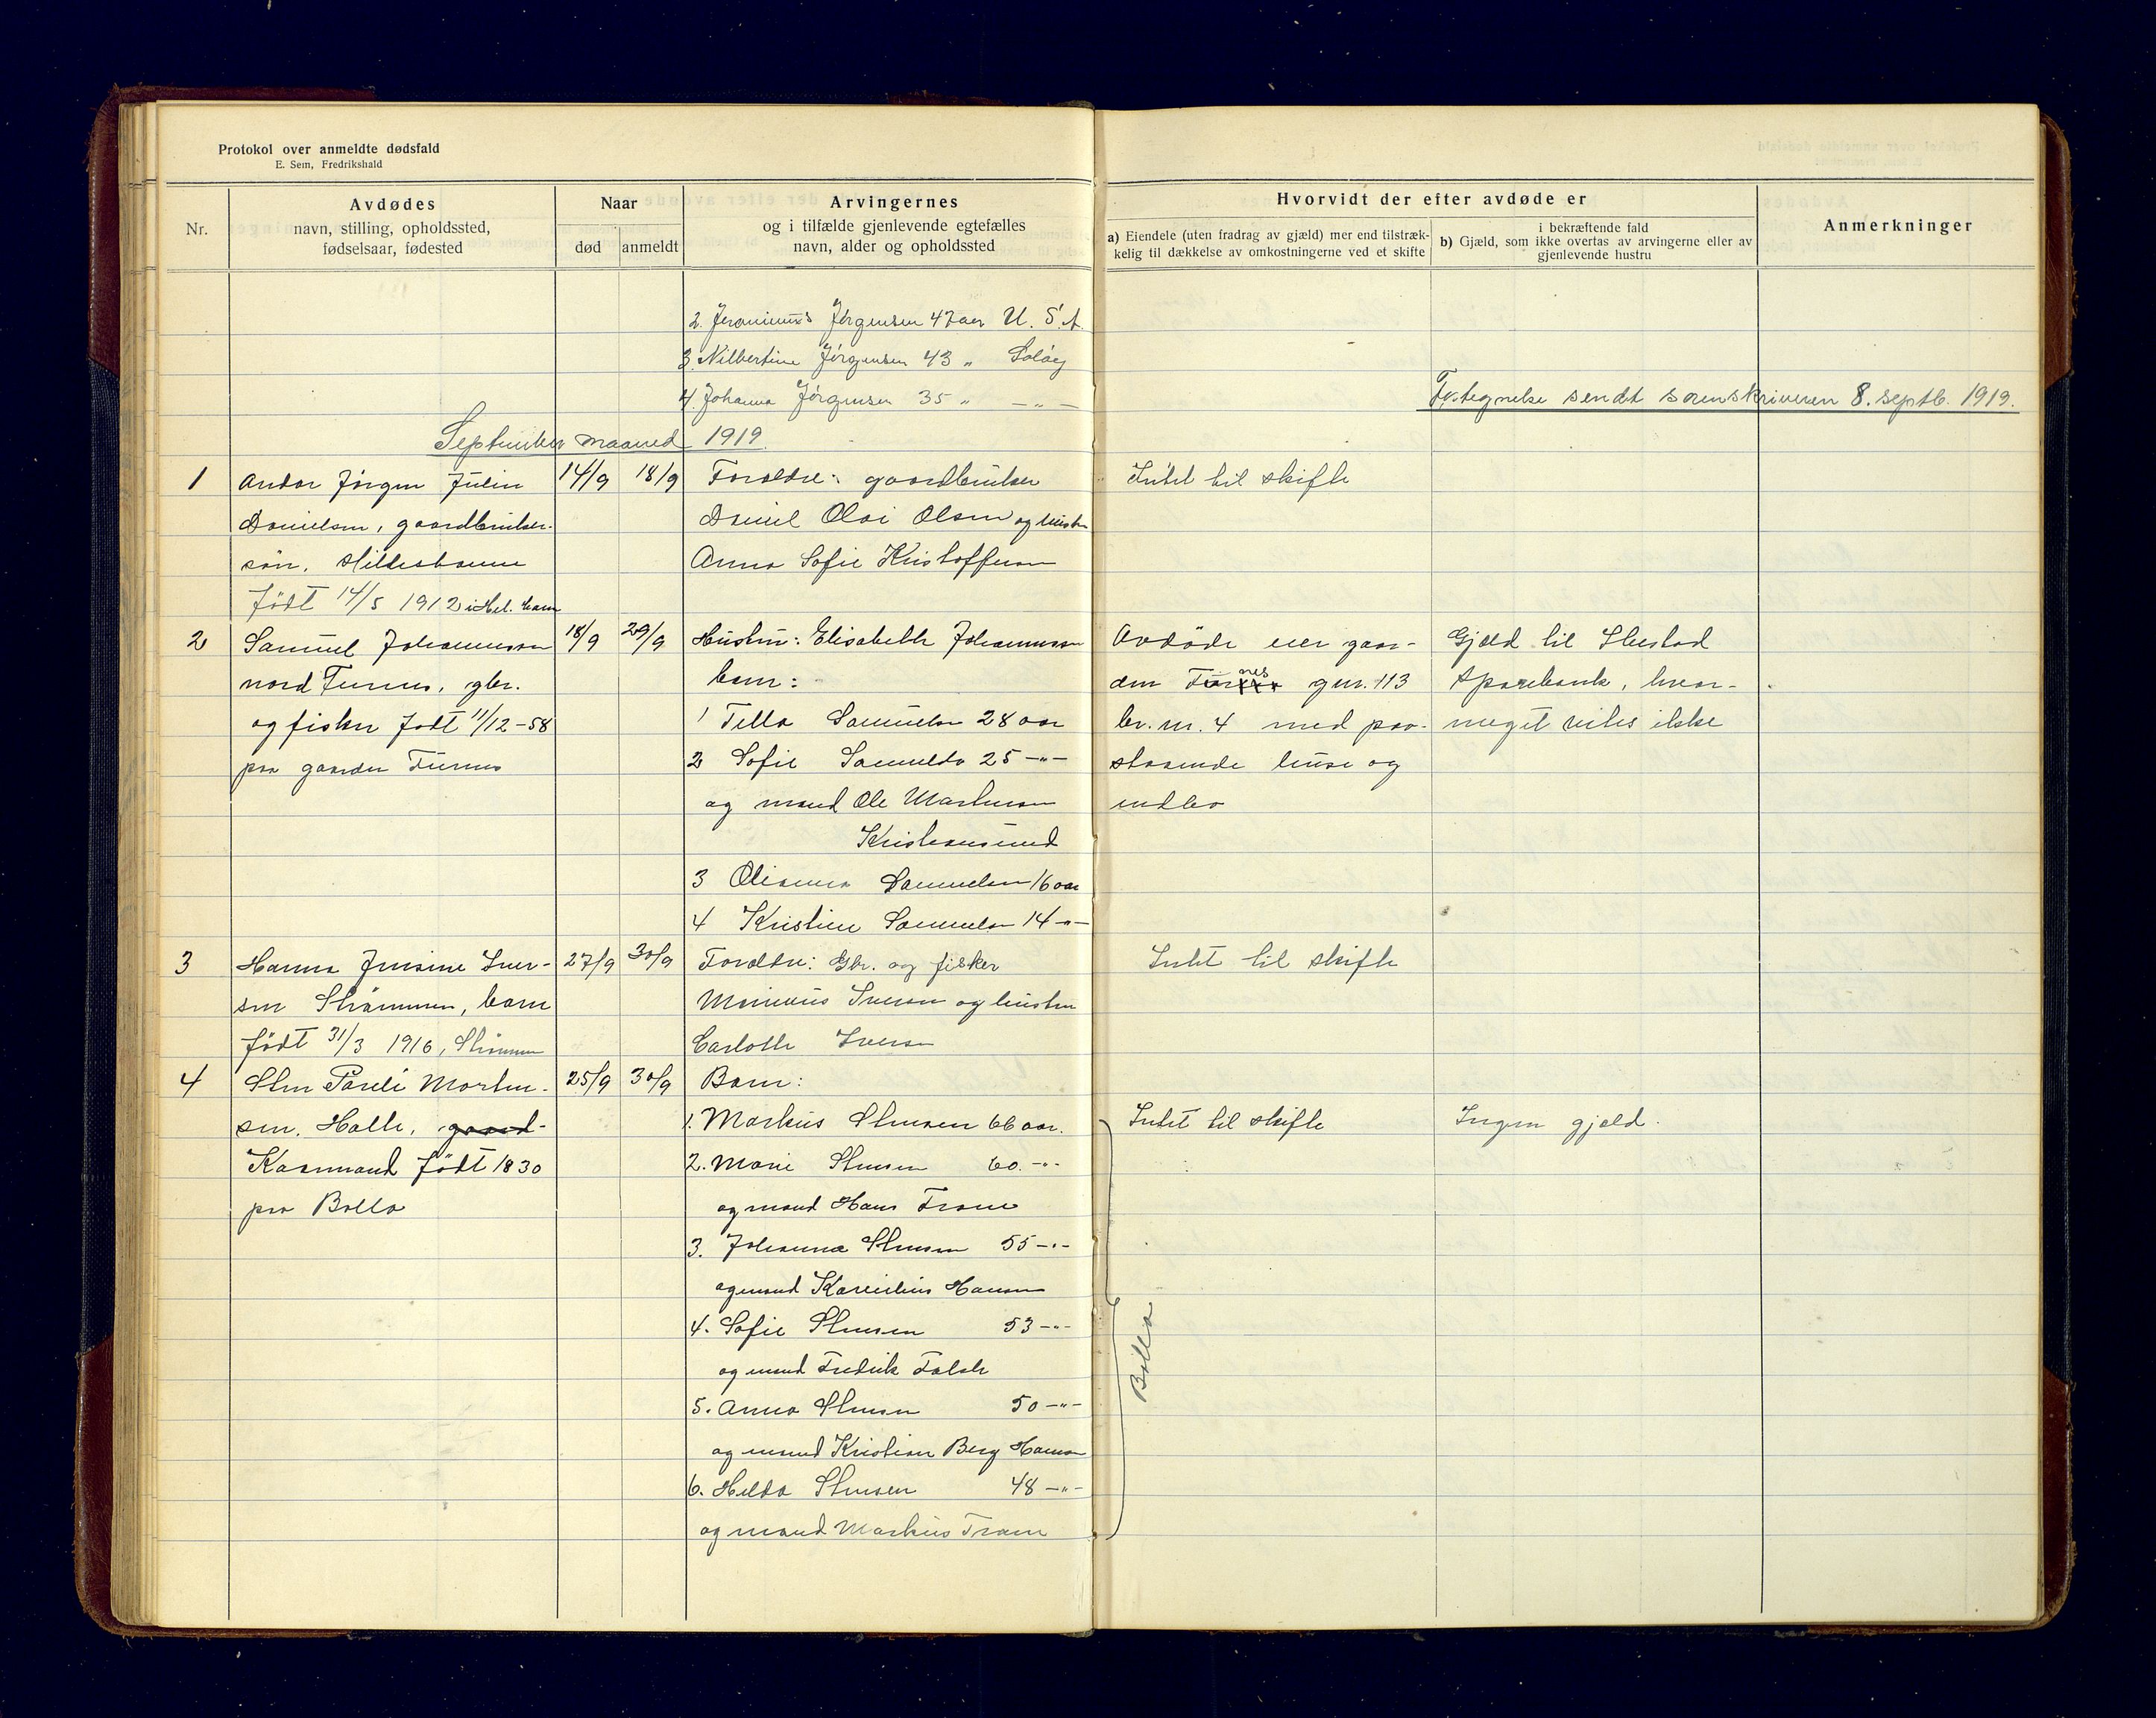 Protokol over anmeldte dødsfald
E. Sem, Fredrikshald
Nr.
Avdødes
navn, stilling, opholdssted,
fødselsaar, fødested
Naar
død
anmeldt
Arvingernes
og i tilfælde gjenlevende egtefælles
navn, alder og opholdssted
Hvorvidt der efter avdøde er
a) Eiendele (uten fradrag av gjæld) mer end tilstræk-
kelig til dækkelse av omkostningerne ved et skifte
i bekræftende fald
b) Gjæld, som ikke overtas av arvingerne eller av
gjenlevende hustru
Anmerkninger
2. Jeronimus Jörgensen 47 aar U. S. A.
3. Nilbertine Jörgensen 43 "
4. Johanna Jörgensen 35 " — " —
Fortegnelse sendt sorenskriveren 8. septb. 1919.
September maaned 1919.
1 Andor Jörgen Julin 14/9 18/9 Foreldre: gaardbruker Intet til skifte
Danielsen, gaardbruker- Daniel Olai Olsen og hustru
sön, Anna Sofie Kristoffersen
Født 14/5 1912 i
2 Samuel Johannessen 18/9 29/9 Hustru: Elisabeth Johannessen Avdöde eier gaar- Gjæld til
nord Furnes, gbr. barn: den gnr. 113 Sparebank, hvor-
og fisker Født 11/12-58 1 Tella Samuelsen 28 aar br. nr. 4 med paa- meget vites ikke
paa gaarden Furnes 2 Sofie Samuelsd 25 —"— staaende huse og
og mand Ole Martinsen indbo
Kristiansund
3 Olianna Samuelsen 16 aar
4 Kristine Samuelsen 14 —"—
3 Hanna Jensine Iver- 27/9 30/9 Foreldre: Gbr. og fisker Intet til skifte
sen Strömmen, barn Marinius Iversen og hustru
født 31/3 1916, Strömmen Carlotte Iversen
4 Sten Pareli Morten- 25/9 30/9 Barn:
sen. Halle, gaard- 1. Markus Stensen 66 aar. Intet til skifte Ingen gjeld.
Kaarmand født 1830 2. Marie Stensen 60. —"—
paa Bolla og mand Hans Tranø
3. Johanna Stensen 55 —"—
og mand Hansen
4. Sofie Stensen 53 —"—
og mand Fredrik Falch
5. Anna Stensen 50 —"—
og mand Kristian Berg Hansen
6. Hilda Stensen 48 —"—
og mand Markus Tranø
Bolla